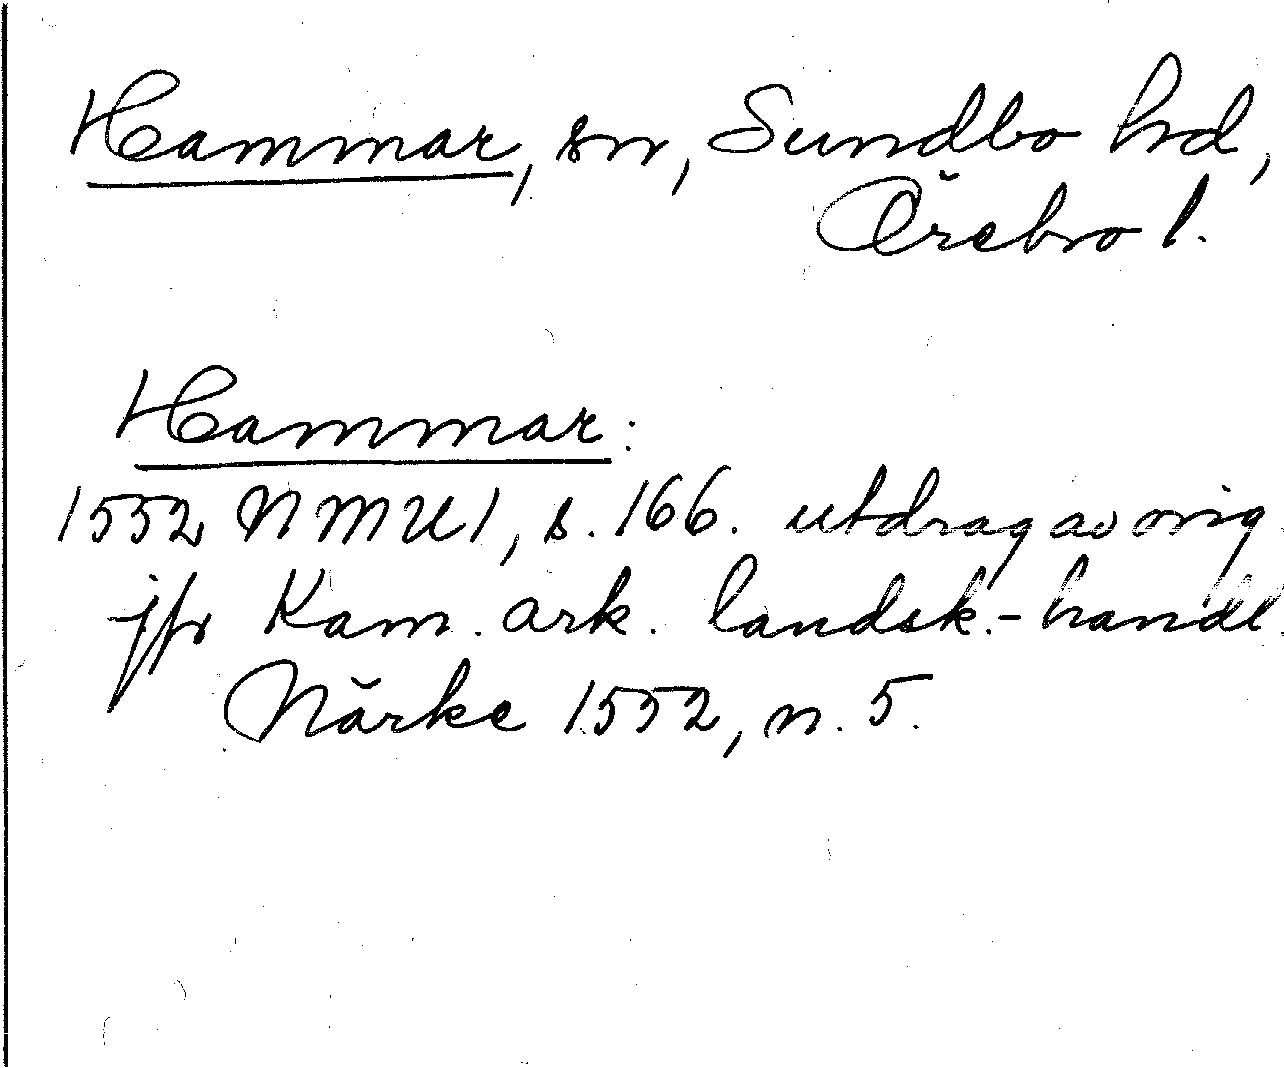 Hammar, sn, Sundbo hd,
Örebro l.
Hammar:
1552 NMU 1, s. 166. utdrag av orig.
jfr Kam. ark. landsk.-handl.
Närke 1552, n. 5.